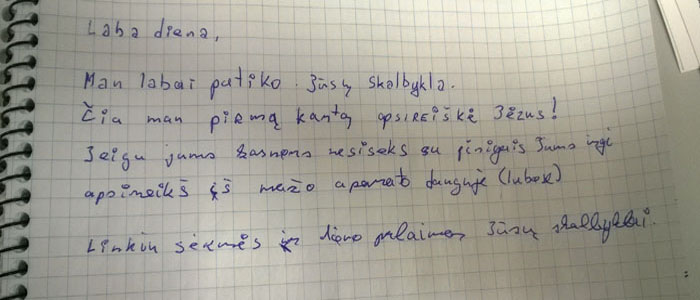 Laba diena,
Man labai patiko Jūsų skalbykla.
Čia man pirmą kartą apsireiškė Jėzus!
Jeigu jums nesiseks su pinigais Jums irgi
apsireikš iš mažo aparato danguje (lubose)
Linkiu sėkmės ir Jūsų skalbyklai.